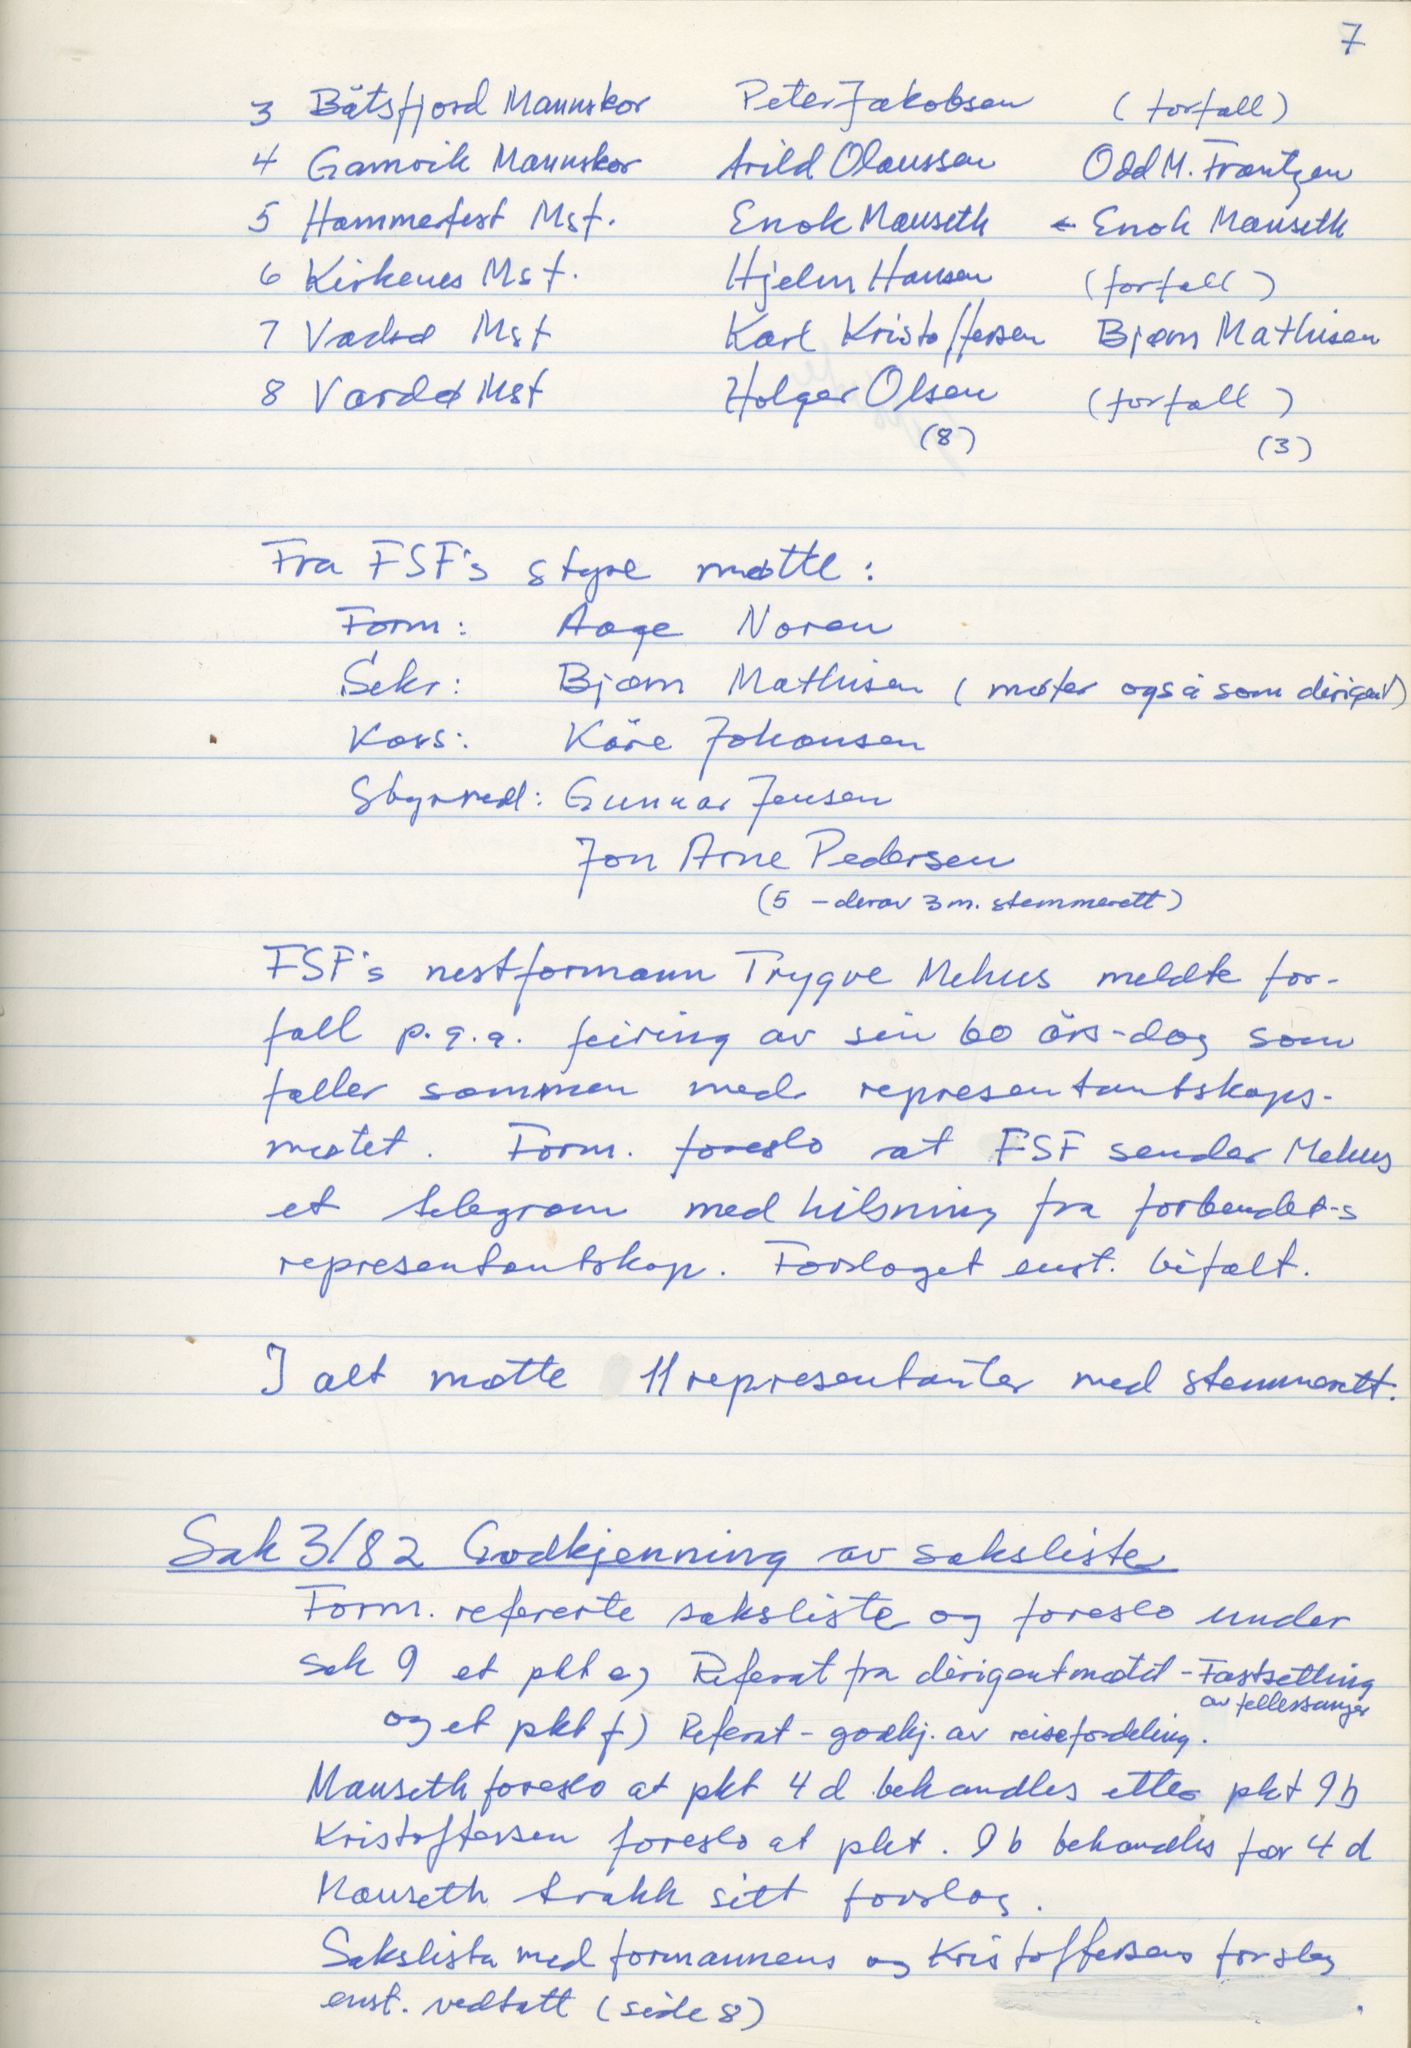 7
3 Båtsfjord Mannskor Peter Jakobsen (forfall)
4 Gamvik Mannskor Arild Olaussen Odd M. Frantzen
5 Hammerfest Msf. Enok Mauseth ← Enok Mauseth
6 Kirkenes Msf. Hjelm Hansen (forfall)
7 Vadsø Msf Karl Kristoffersen Bjørn Mathisen
8 Vardø Msf Holger Olsen (forfall)
(8) (3)
Fra FSF's styre møtte:
Form: Aage Noren
Sekr: Bjørn Mathisen (møter også som dirigent)
Kass: Kåre Johansen
Styremedl: Gunnar Jensen
Jon Arne Pedersen
(5 - derav 3 m. stemmerett)
FSF's nestformann Trygve Mehus meldte for-
fall p.g.a. feiring av sin 60 års-dag som
faller sammen med representantskaps-
møtet. Form. foreslo at FSF sender Mehus
et telegram med hilsning fra forbundet-s
representantskap. Forslaget enst. bifalt.
I alt møtte 11 representanter med stemmerett.
Sak 3/82 Godkjenning av saksliste
Form. refererte saksliste og foreslo under
sak 9 et pkt e) Referat fra dirigentmøtet - Fastsetting
av fellessanger
og et pkt f) Referat - godkj. av reisefordeling.
Mauseth foreslo at pkt 4 d behandles etter pkt 9 b
Kristoffersen foreslo at pkt. 9 b behandles før 4 d
Mauseth trakk sitt forslag.
Sakslista med formannens og Kristoffersens forslag
enst. vedtatt (side 8)